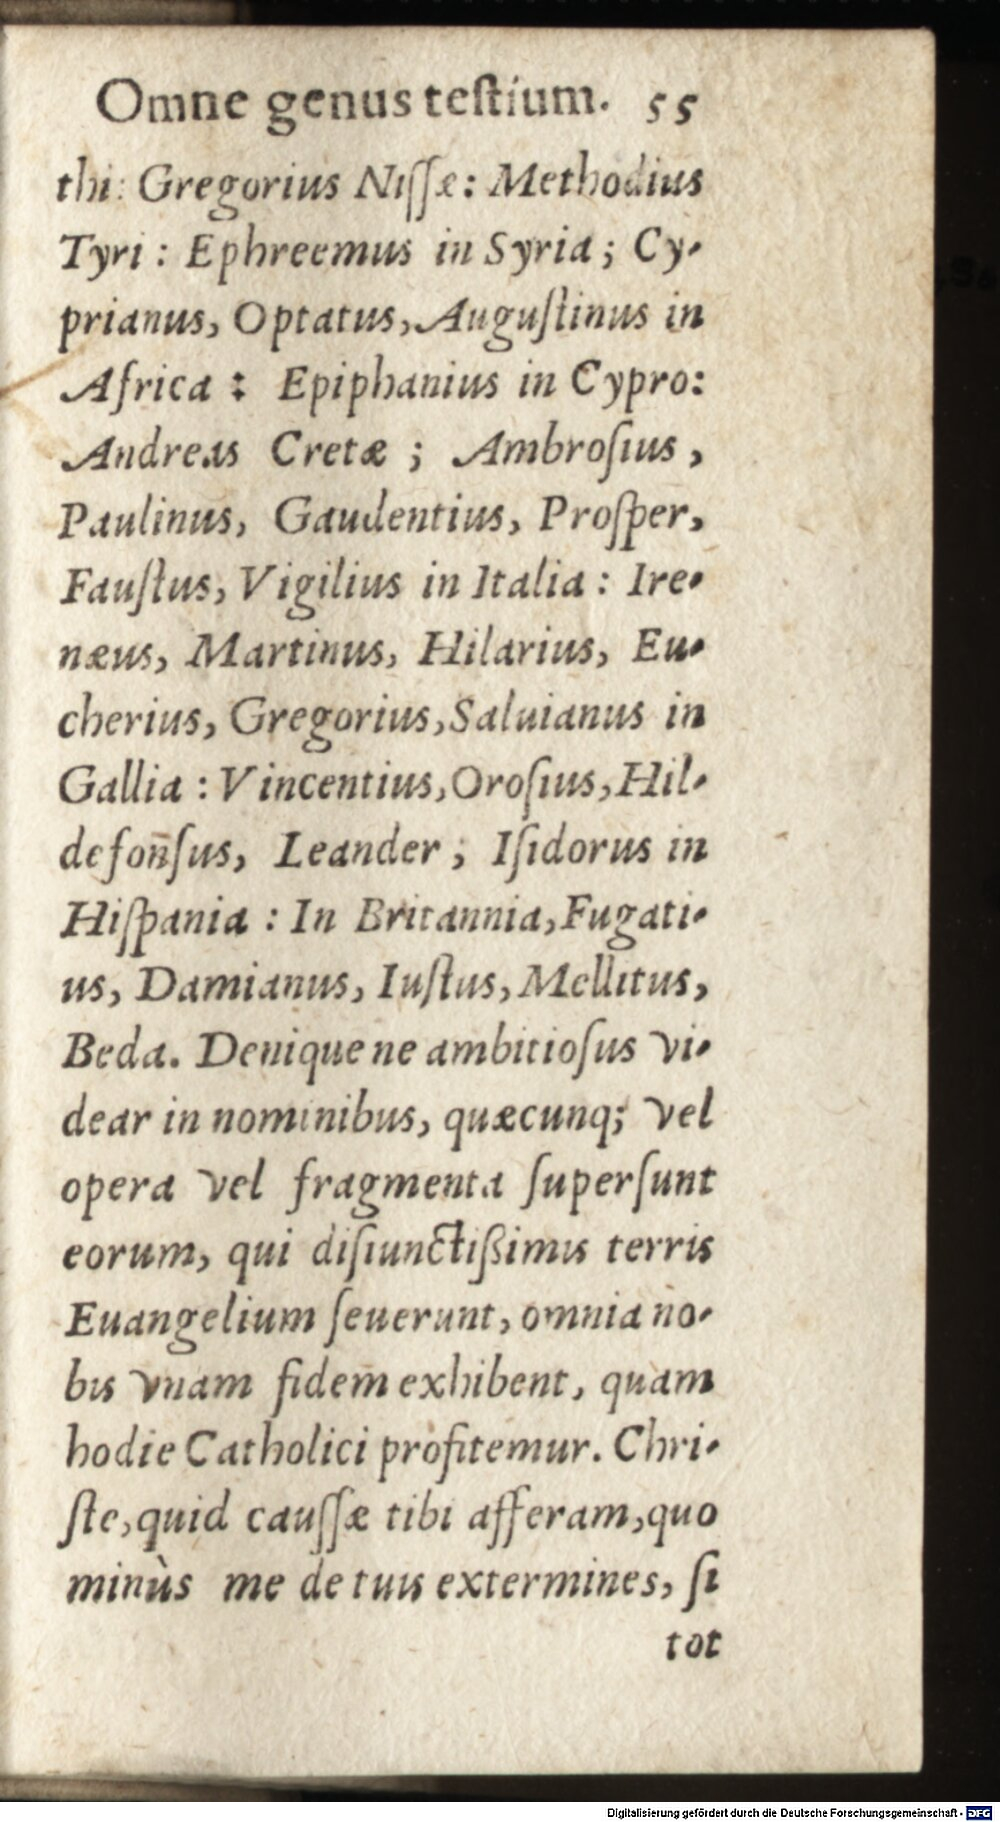 Omne genus teſtium. 55
thi: Gregorius Niſſæ: Methodius
Tyri: Ephreemus in Syria; Cy-
prianus, Optatus, Auguſtinus in
Africa: Epiphanius in Cypro:
Andreas Cretæ; Ambroſius,
Paulinus, Gaudentius, Proſper,
Fauſtus, Vigilius in Italia: Ire-
næus, Martinus, Hilarius, Eu-
cherius, Gregorius, Saluianus in
Gallia: Vincentius, Oroſius, Hil-
defon̄ſus, Leander; Iſidorus in
Hiſpania: In Britannia, Fugati-
us, Damianus, Iuſtus, Mellitus,
Beda. Denique ne ambitioſus vi-
dear in nominibus, quæcunq; vel
opera vel fragmenta ſuperſunt
eorum, qui diſiunctißimis terris
Euangelium ſeuerunt, omnia no-
bis vnam fidem exhibent, quam
hodie Catholici profitemur. Chri-
ſte, quid cauſſæ tibi afferam, quo
minùs me de tuis extermines, ſi
tot
Digitalisierung gefördert durch die Deutsche Forschungsgemeinschaft - DFG